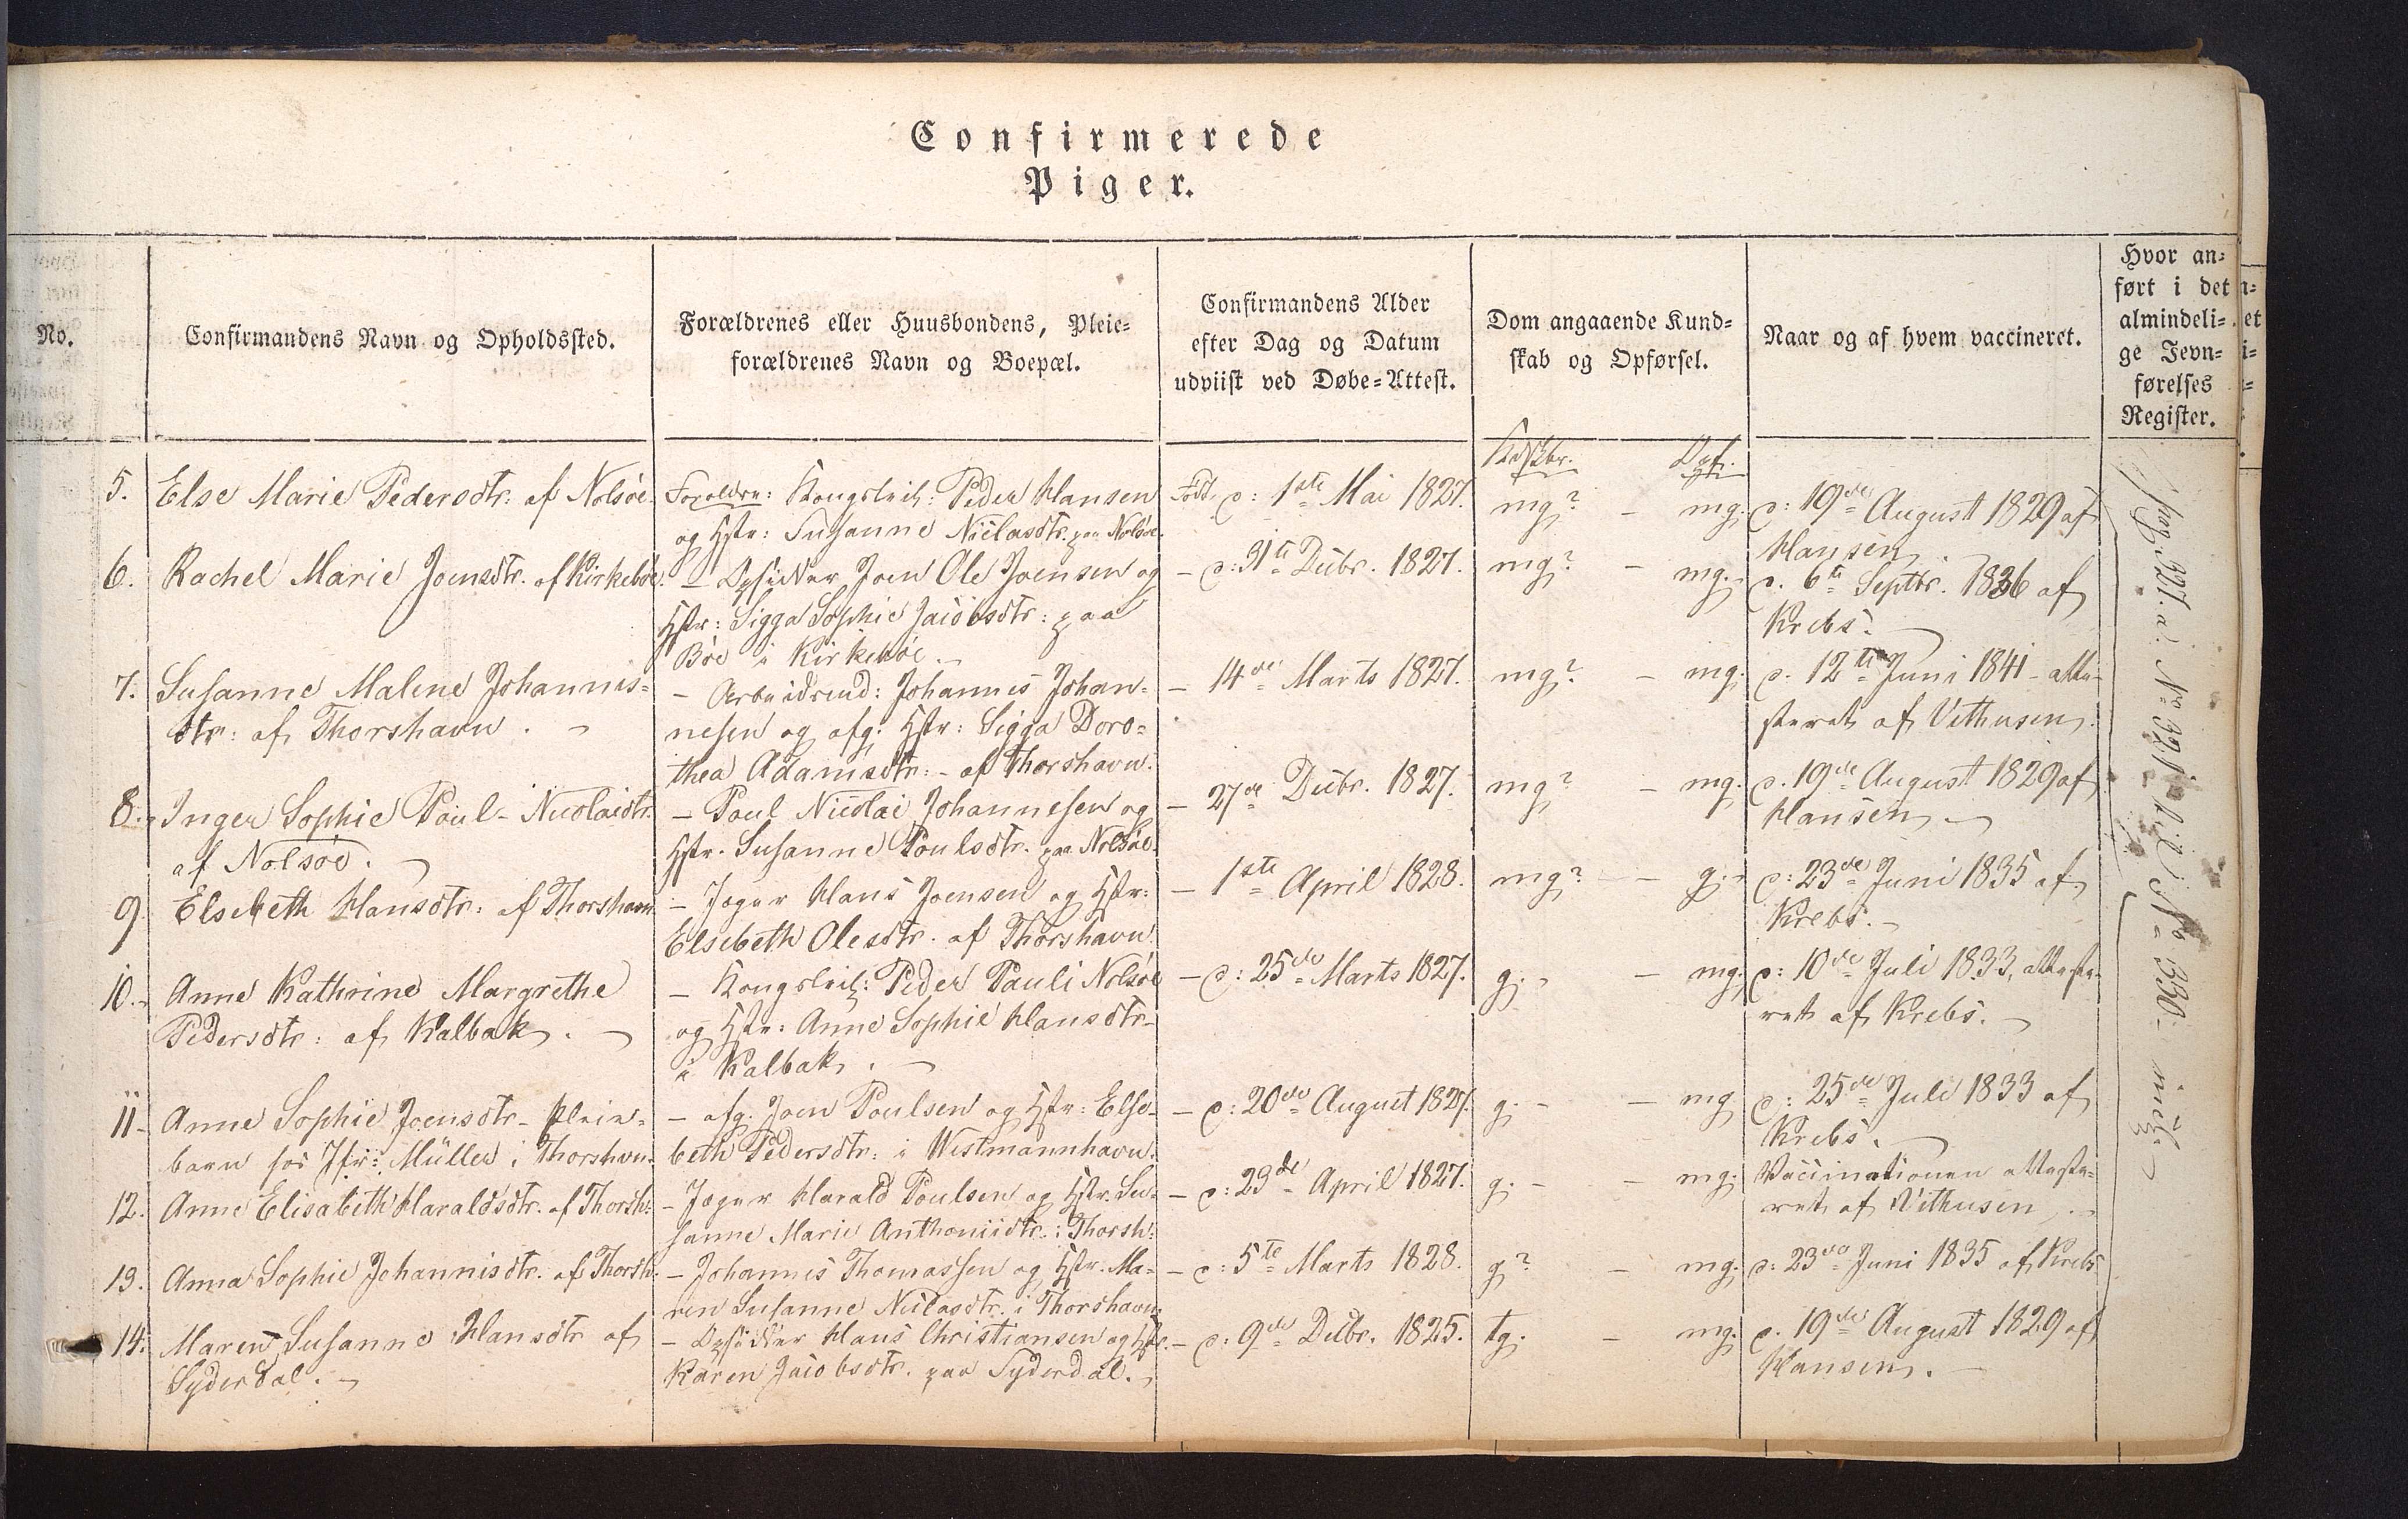 Confirmerede
Piger.
No.
Confirmandens Navn og Opholdssted.
Forældrenes eller Huusbondens, Pleie=
forældrenes Navn og Boepæl.
Confirmandens Alder
efter Dag og Datum
udviist ved Døbe=Attest.
Dom angaaende Kund=
skab og Opførsel.
Naar og af hvem vaccineret.
Hvor an=
ført i det
almindeli=
ge Jevn=
førelses
Register.
5.
Else Marie Pedersdtr: af Nolsøe.
Forældre: Kongsleil: Peder Hansen
og Hstr: Susanne Niclasdtr. paa Nolsøe.
Født d: 1ste Mai 1827.
mg? - mg.
d: 19de August 1829 af
Hansen.
6.
Rachel Marie Joensdtr. af Kirkebøe.
- Opsidder Joen Ole Joensen og
Hstr: Sigga Sophie Jacobsdtr: paa
Bøe i Kirkebøe.
- d: 31te Decbr. 1827.
mg? - mg.
d. 6te Septbr. 1836 af
Krebs.
7.
Susanne Malene Johannis=
dtr: af Thorshavn.
- Arbeidsmd: Johannes Johan=
nesen og afg: Hstr: Sigga Doro=
thea Adamsdtr: - af Thorshavn.
- 14de Marts 1827.
mg? - mg.
d. 12te Juni 1841 - atte-
steret af Vithusen.
8.
Inger Sophie Poul-Nicolaidtr.
af Nolsøe.
- Poul Nicolai Johannesen og
Hstr. Susanne Poulsdtr. paa Nolsøe.
- 27de Decbr. 1827.
mg? - mg.
d. 19de August 1829 af
Hansen
9.
Elsebeth Hansdtr: af Thorshavn
- Jæger Hans Joensen og Hstr:
Elsebeth Olesdtr. af Thorshavn.
- 1ste April 1828.
mg? - g.
d: 23de Juni 1835 af
Krebs.
10.
Anne Kathrine Margrethe
Pedersdtr: af Kalbak.
- Kongsleil: Peder Pauli Nolsøe
og Hstr: Anne Sophie Hansdtr-
i Kalbak.
- d: 25de Marts 1827.
g. - mg.
d: 10de Juli 1833, atteste-
ret af Krebs.
11
Anne Sophie Joensdtr - Pleie=
barn hos Jfr: Müller i Thorshvn.
- afg. Joen Poulsen og Hstr: Else-
beth Pedersdtr: i Westmannhavn.
- d: 20de August 1827.
g. - mg
d: 25de Juli 1833 af
Krebs.
12.
Anne Elisabeth Haraldsdtr. af Thorsh:
- Jæger Harald Poulsen og Hstr. Su-
sanne Marie Anthoniidtr. i Thorsh:
- d: 23de April 1827.
g. - mg.
Vaccinationen atteste-
ret af Vithusen.
13.
Anna Sophie Johannisdtr. af Thorsh.
- Johannes Thomassen og Hstr. Ma-
ren Susanne Niclasdtr. i Thorshavn
- d: 5te Marts 1828.
g? - mg.
d: 23de Juni 1835 af Krebs
14.
Maren Susanne Hansdtr af
Syderdal.
- Opsidder Hans Christiansen og Hstr.
Karen Jacobsdtr. paa Syderdal.
- d: 9de Decbr. 1825.
tg. - mg.
d. 19de August 1829 af
Hansen.
pag. 327. a. No 321 - til No 330 - incl.